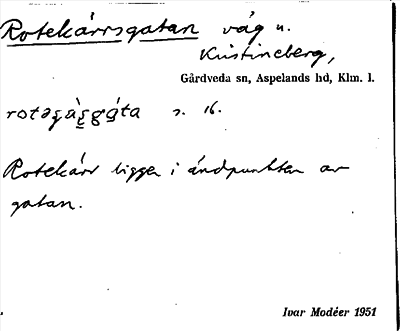 Rotekärrsgatan väg u.
Kristineberg,
Gårdveda sn, Aspelands hd, Klm. l.
s. 16.
Rotekärr ligger i ändpunkten av
gatan.
Ivar Modéer 1951